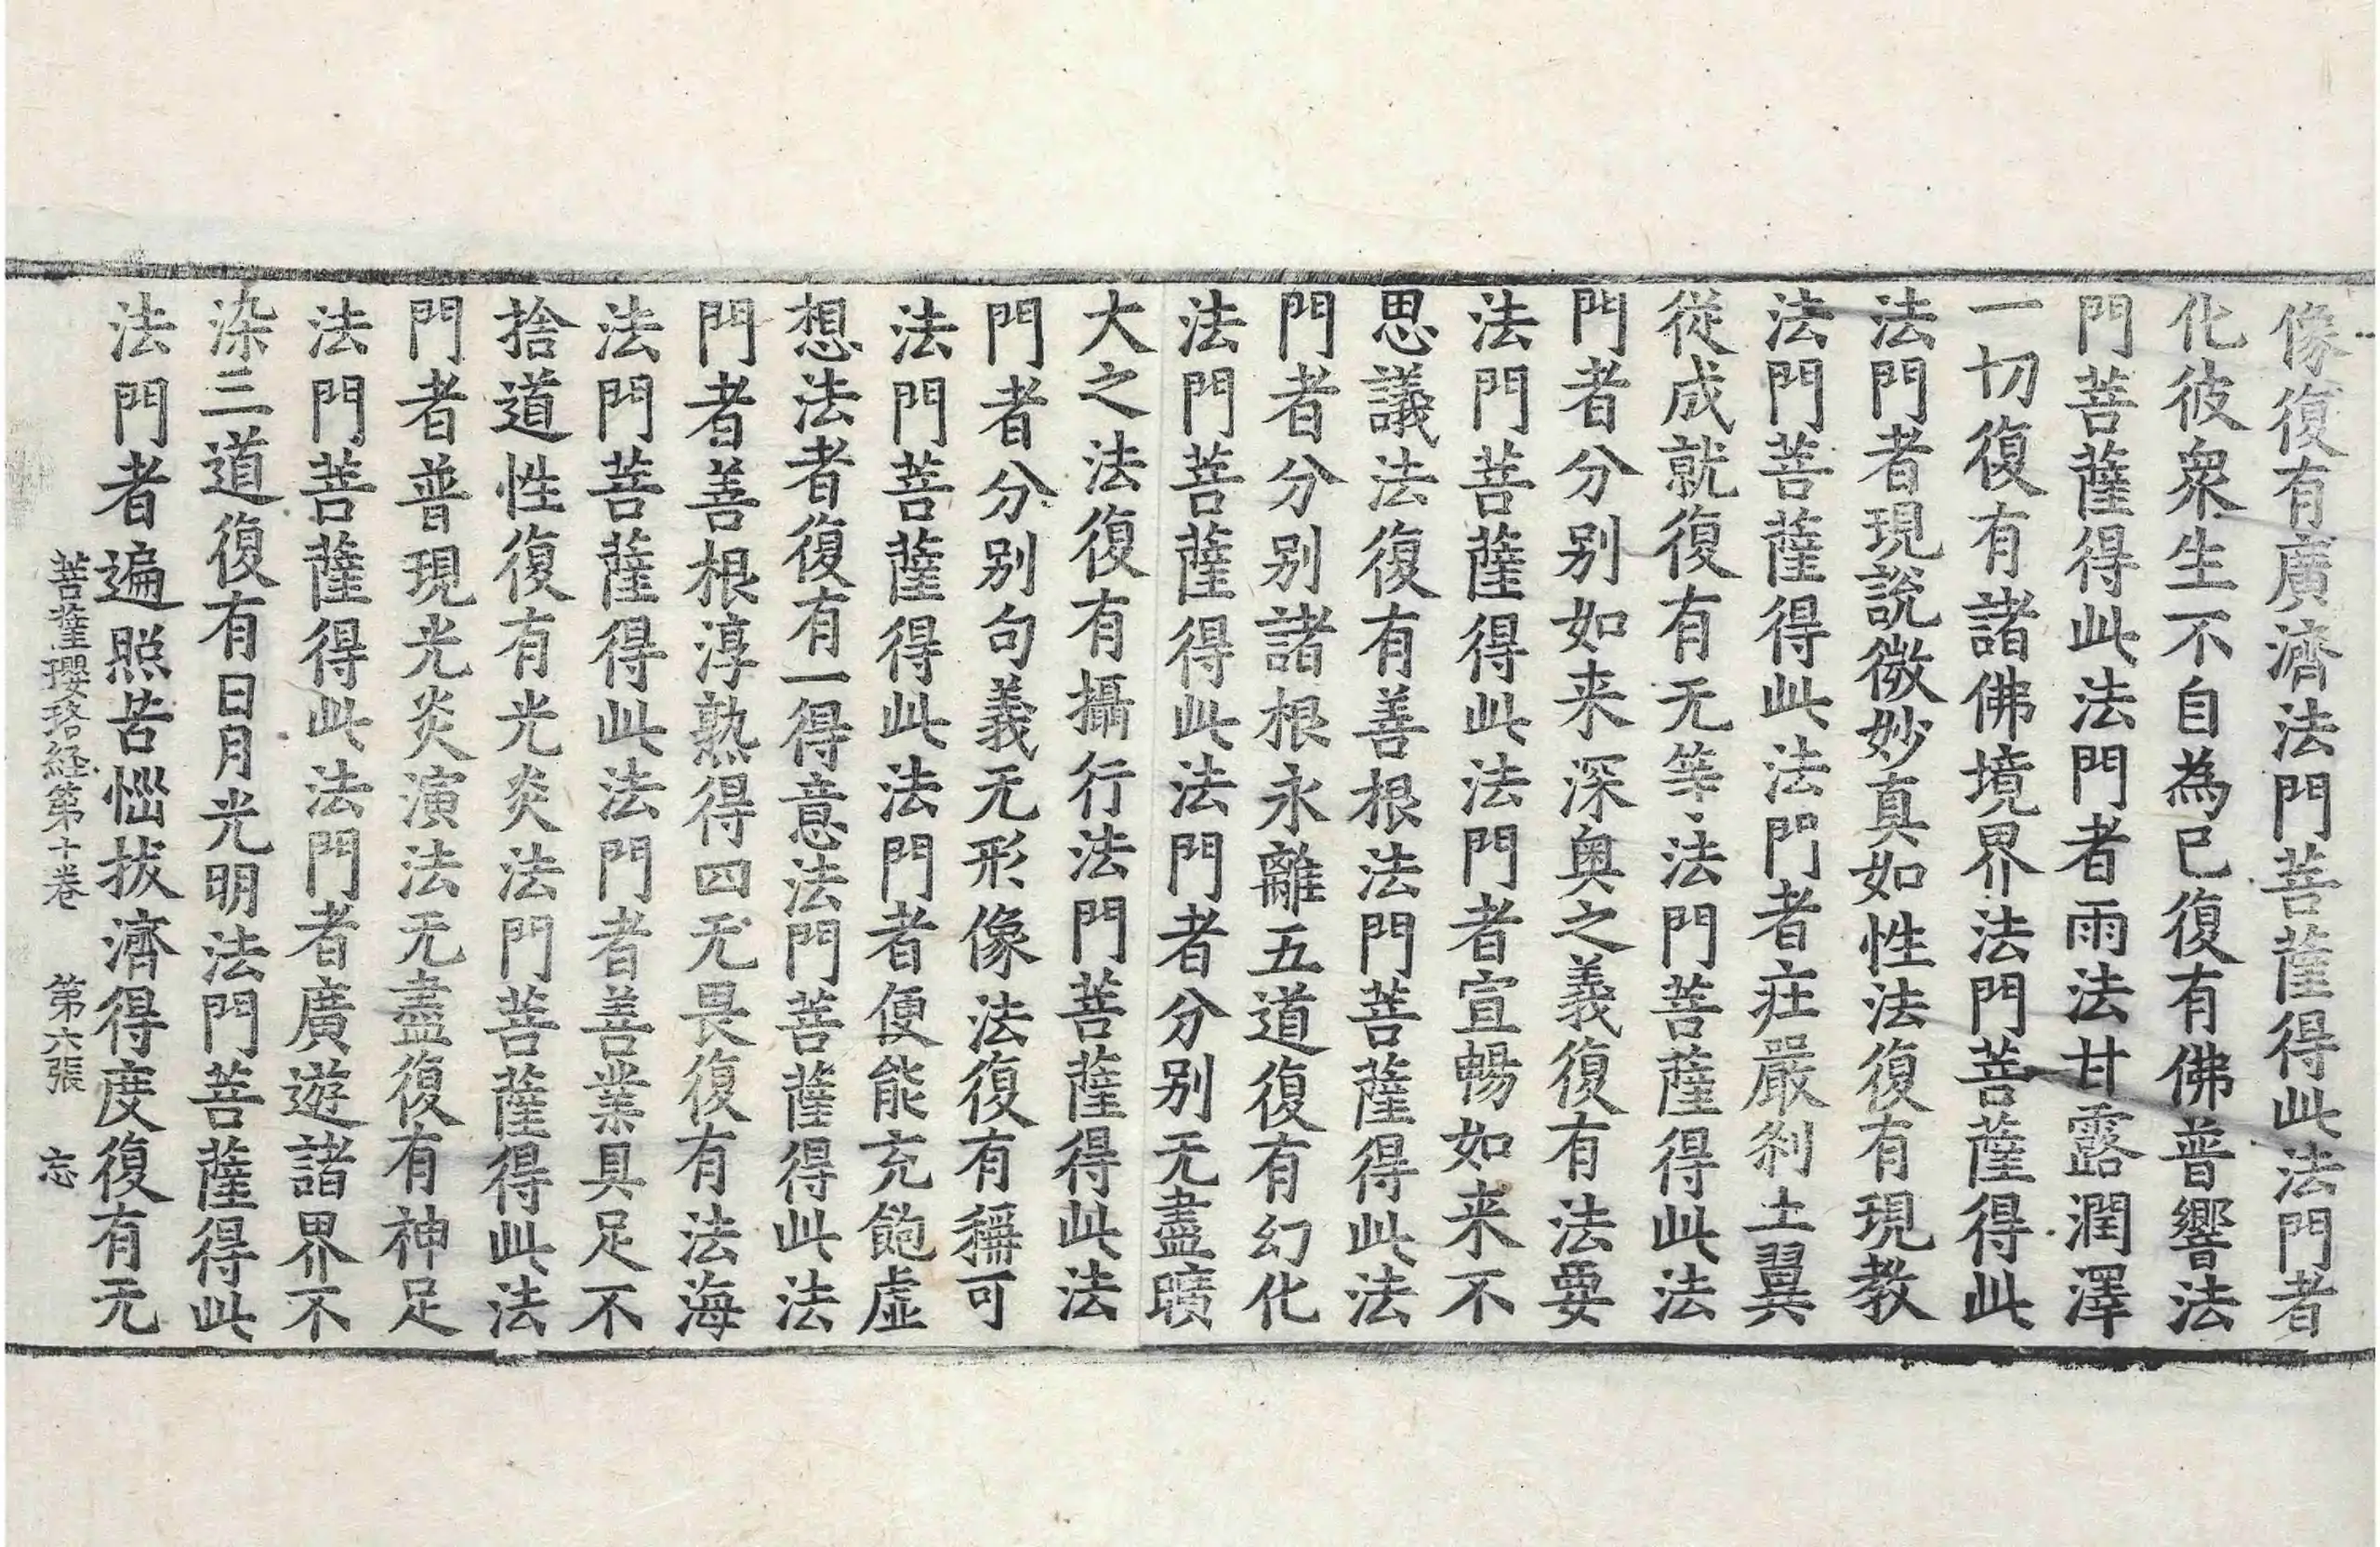 像復有廣濟法門菩薩得此法門者
化彼衆生不自為已復有佛普響法
門菩薩得此法門者雨法甘露潤澤
一切復有諸佛境界法門菩薩得此
法門者現說微妙真如性法復有現教
法門菩薩得此法門者莊嚴刹土翼
從成就復有无等法門菩薩得此法
門者分别如来深奥之義復有法要
法門菩薩得此法門者宣暢如来不
思議法復有善根法門菩薩得此法
門者分别諸根永離五道復有幻化
法門菩薩得此法門者分别无盡曠
大之法復有攝行法門菩薩得此法
門者分别句義无形像法復有稱可
法門菩薩得此法門者便能充飽虛
想法者復有一得意法門菩薩得此法
門者善根淳熟得四无畏復有法海
法門菩薩得此法門者善業具足不
捨道性復有光炎法門菩薩得此法
門者普現光炎演法无盡復有神足
法門菩薩得此法門者廣遊諸界不
染三道復有日月光明法門菩薩得此
法門者遍照苦惱拔濟得度復有无
菩薩瓔珞経第十卷 第六張 忘